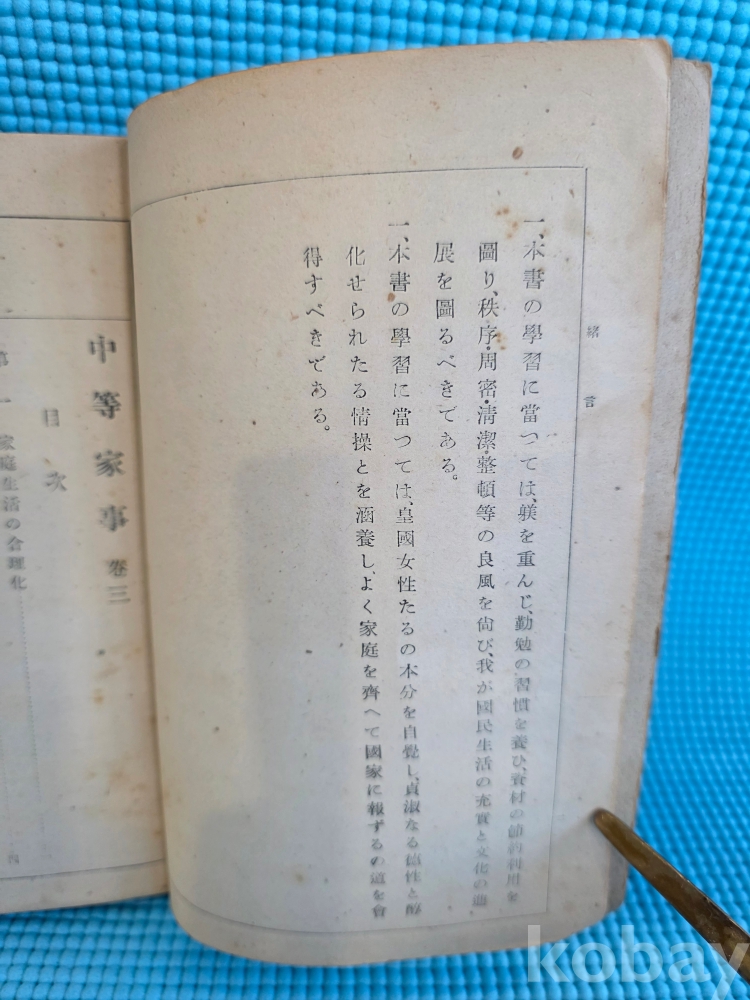 緒言
一、本書の學習に當つては、躾を重んじ、勤勉の習慣を養ひ、資材の節約利用を
圖り、秩序・周密・清潔・整頓等の良風を尙び、我が國民生活の充實と文化の進
展を圖るべきである。
一、本書の學習に當つては、皇國女性たるの本分を自覺し、貞淑なる德性と醇
化せられたる情操とを涵養し、よく家庭を齊へて國家に報ずるの道を會
得すべきである。
中等家事 卷三
目次
第一 家庭生活の合理化……………四
kobay